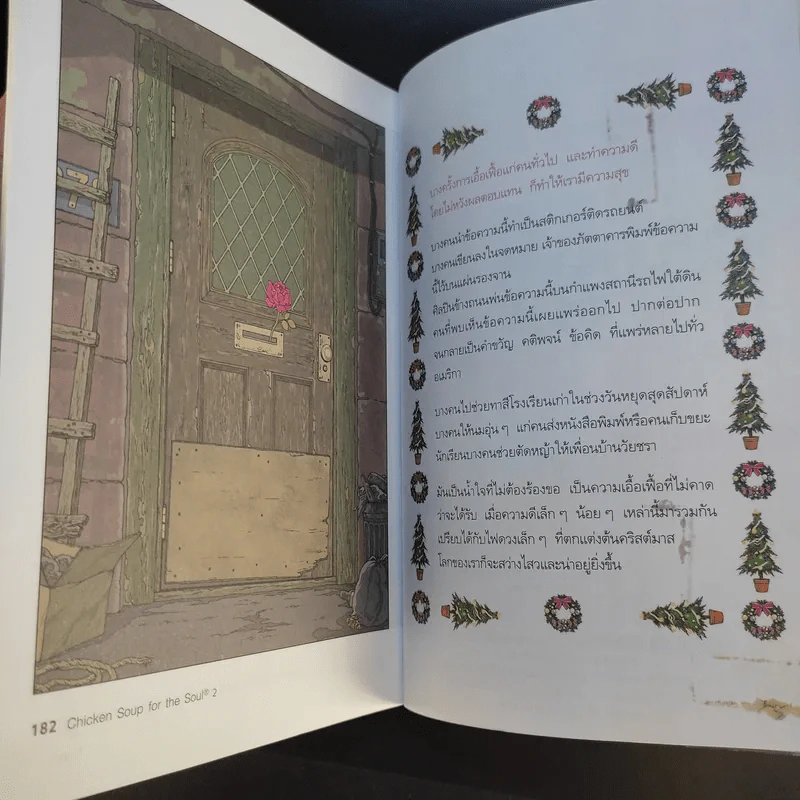 182 Chicken Soup for the Soul® 2
บางครั้งการเอื้อเฟื้อแก่คนทั่วไป และทำความดี
โดยไม่หวังผลตอบแทน ก็ทำให้เรามีความสุข
บางคนนำข้อความนี้ทำเป็นสติกเกอร์ติดรถยนต์
บางคนเขียนลงในจดหมาย เจ้าของภัตตาคารพิมพ์ข้อความ
นี้ไว้บนแผ่นรองจาน
ศิลปินข้างถนนพ่นข้อความนี้บนกำแพงสถานีรถไฟใต้ดิน
คนที่พบเห็นข้อความนี้เผยแพร่ออกไป ปากต่อปาก
จนกลายเป็นคำขวัญ คติพจน์ ข้อคิด ที่แพร่หลายไปทั่ว
อเมริกา
บางคนไปช่วยทาสีโรงเรียนเก่าในช่วงวันหยุดสุดสัปดาห์
บางคนให้นมอุ่น ๆ แก่คนส่งหนังสือพิมพ์หรือคนเก็บขยะ
นักเรียนบางคนช่วยตัดหญ้าให้เพื่อนบ้านวัยชรา
มันเป็นน้ำใจที่ไม่ต้องร้องขอ เป็นความเอื้อเฟื้อที่ไม่คาด
ว่าจะได้รับ เมื่อความดีเล็ก ๆ น้อย ๆ เหล่านี้มารวมกัน
เปรียบได้กับไฟดวงเล็ก ๆ ที่ตกแต่งต้นคริสต์มาส
โลกของเราก็จะสว่างไสวและน่าอยู่ยิ่งขึ้น